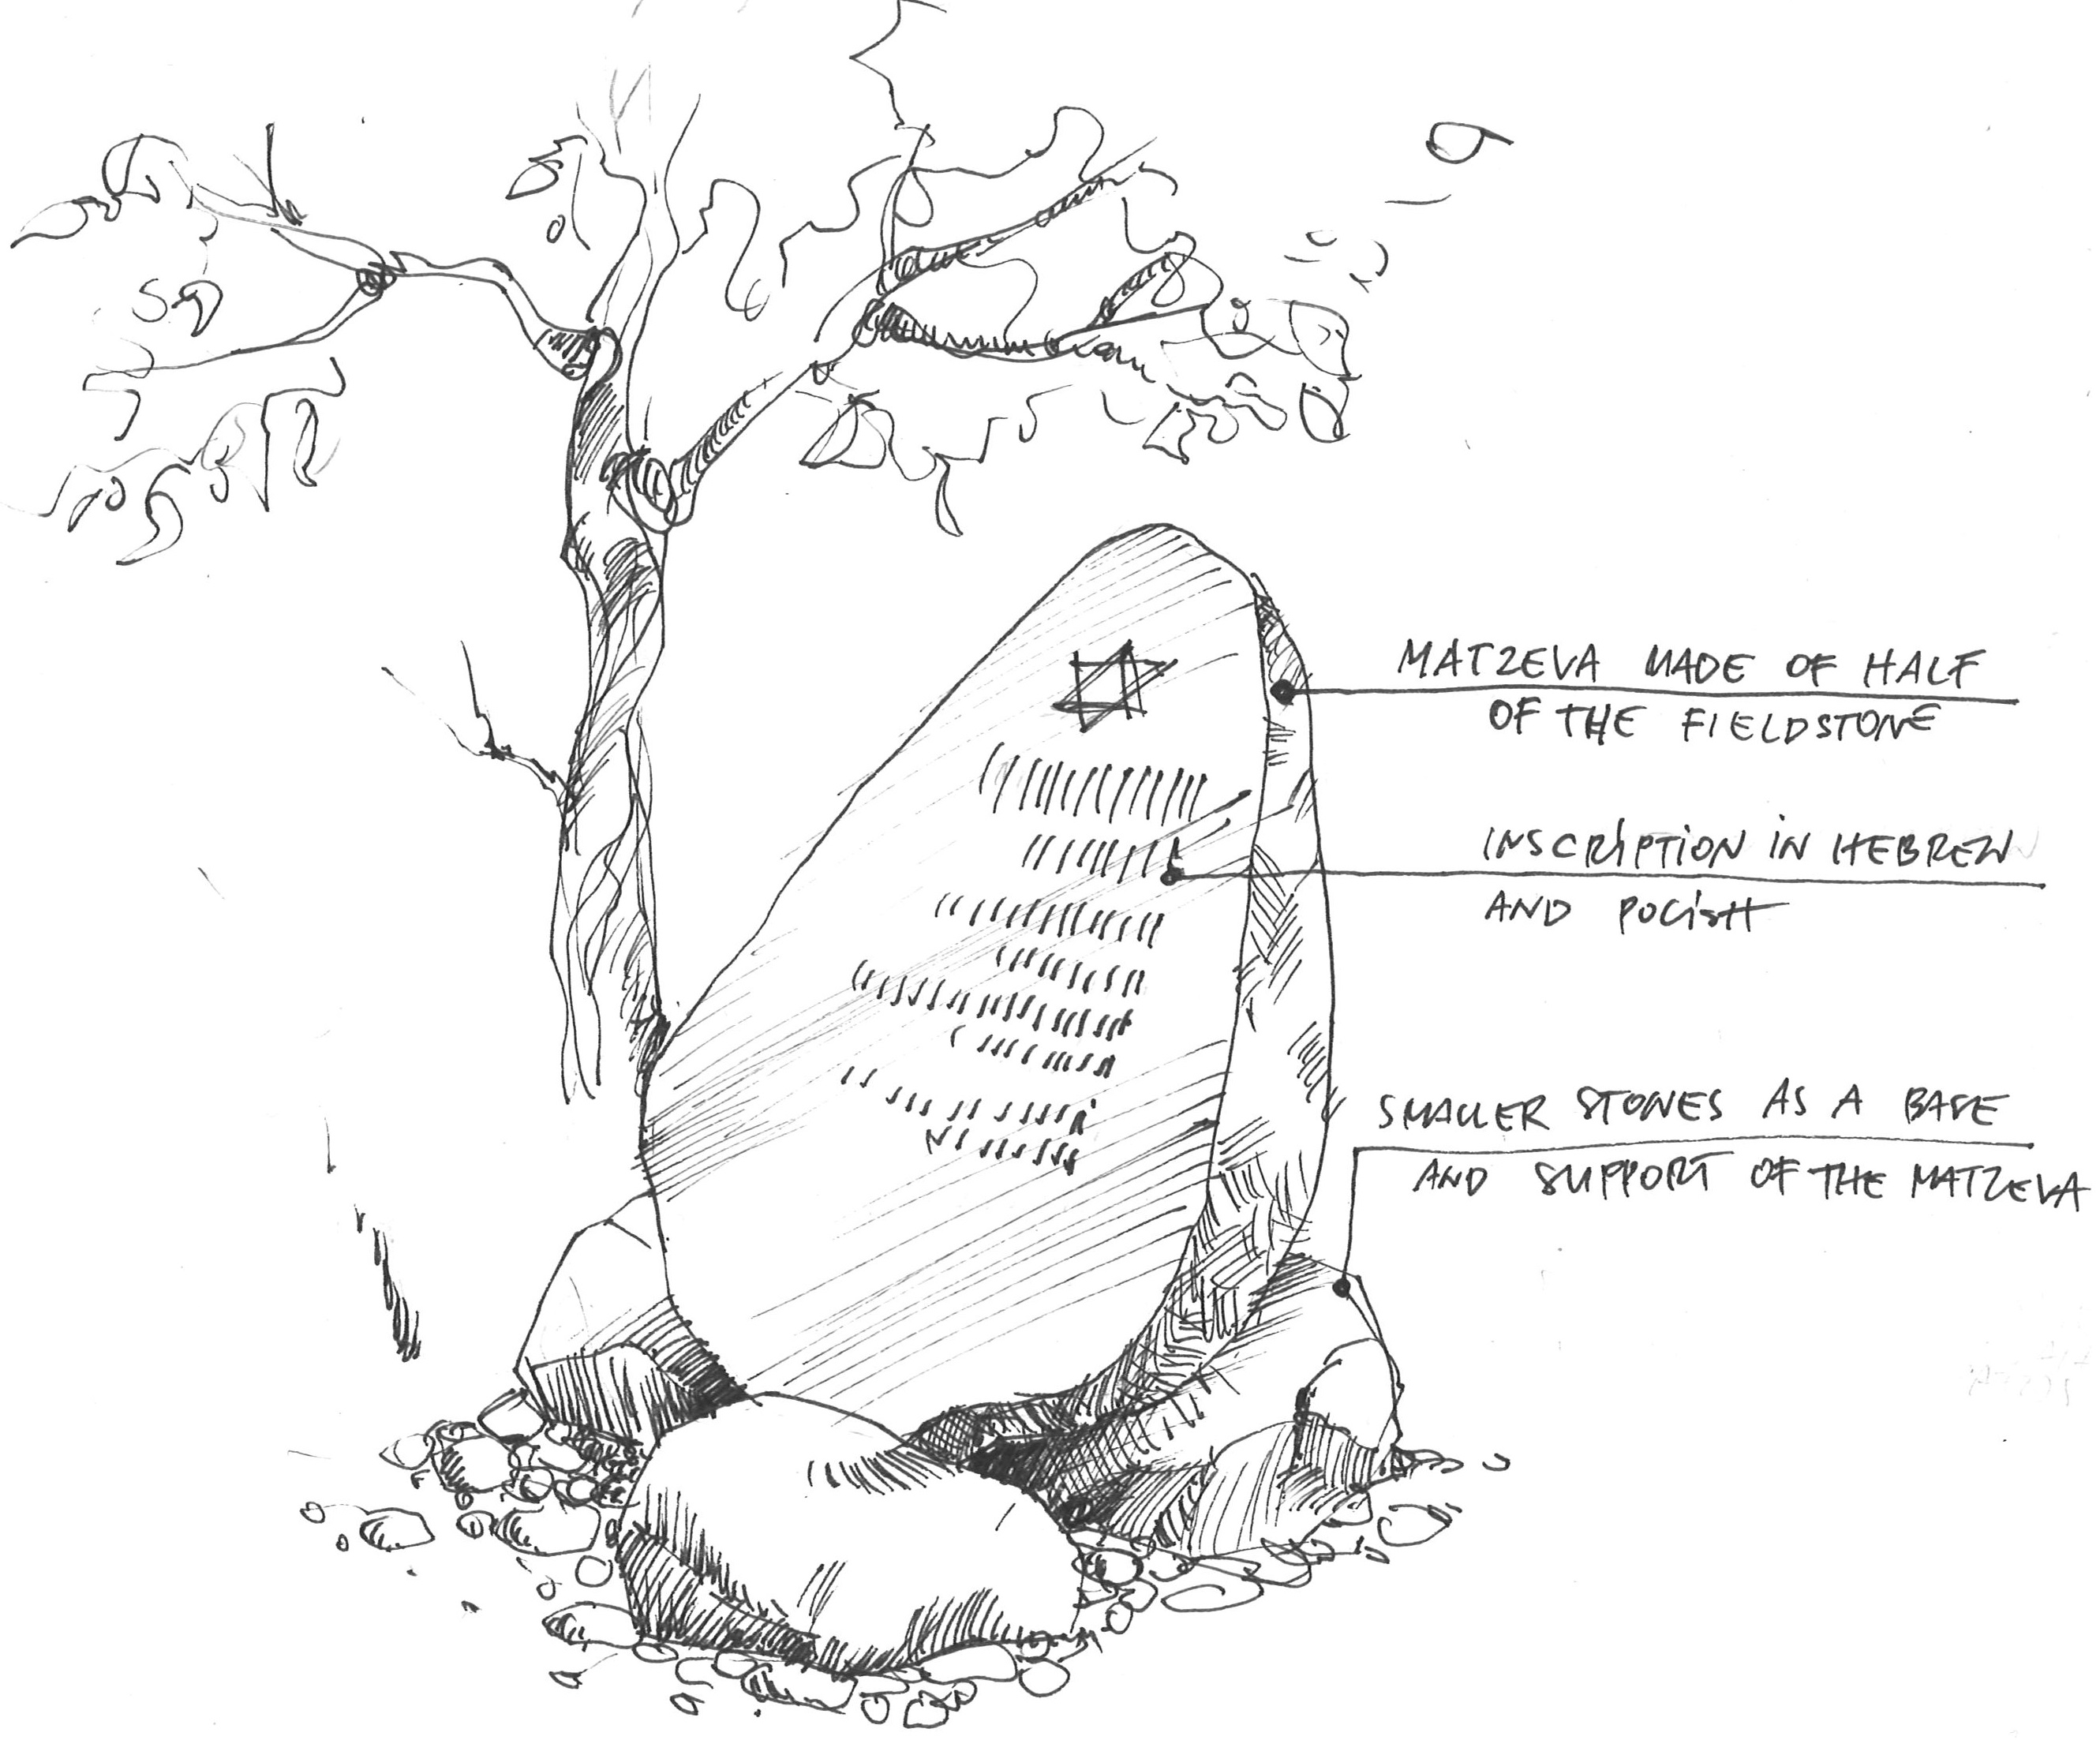 MATZEVA MADE OF HALF
OF THE FIELDSTONE
INSCRIPTION IN HEBREW
AND POLISH
SMALLER STONES AS A BASE
AND SUPPORT OF THE MATZEVA